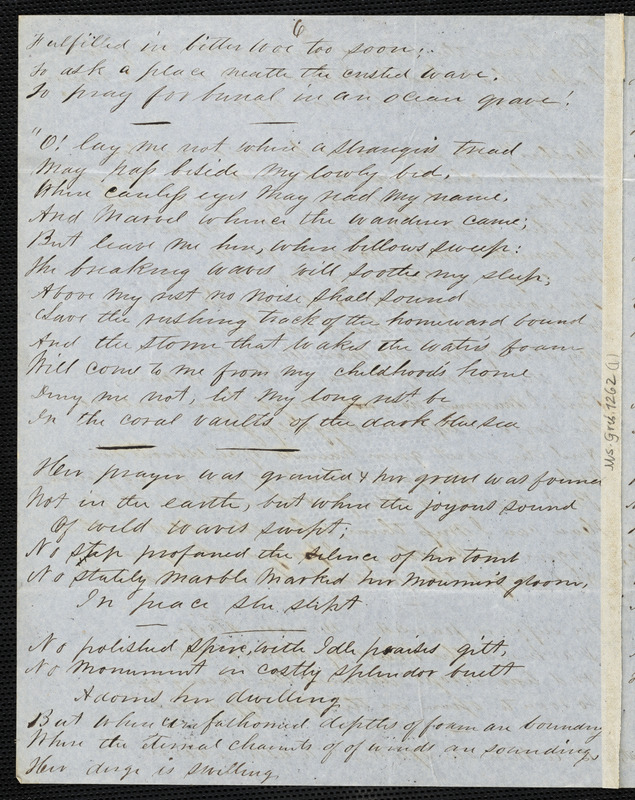 6
Fulfilled in bitter woe too soon;
To ask a place neath the crested wave,
To pray for burial in an ocean grave!
"O! lay me not where a stranger's tread
May pass beside my lowly bed,
Where careless eyes may read my name,
And marvel whence the wanderer came;
But leave me here, where billows sweep:
The breaking waves will soothe my sleep;
Above my rest no noise shall sound
Save the rushing track of the homeward bound
And the storm that wakes the waters foam
Will come to me from my childhoods home
Deny me not, let my long rest be
In the coral vaults of the dark blue sea
Her prayer was granted & her grave was found
Not in the earth, but where the joyous sound
Of wild waves swept;
No step profaned the silence of her tomb
No stately marble marked her mourner's gloom,
In peace she slept
No polished spire, with Idle praises gilt,
No monument in costly splendor built
Adorns her dwelling
But where fashioned depths of foam are bounding
Where the eternal chaunts of of winds are sounding,
Her dirge is swelling
Ms. Gris 1262 (1)